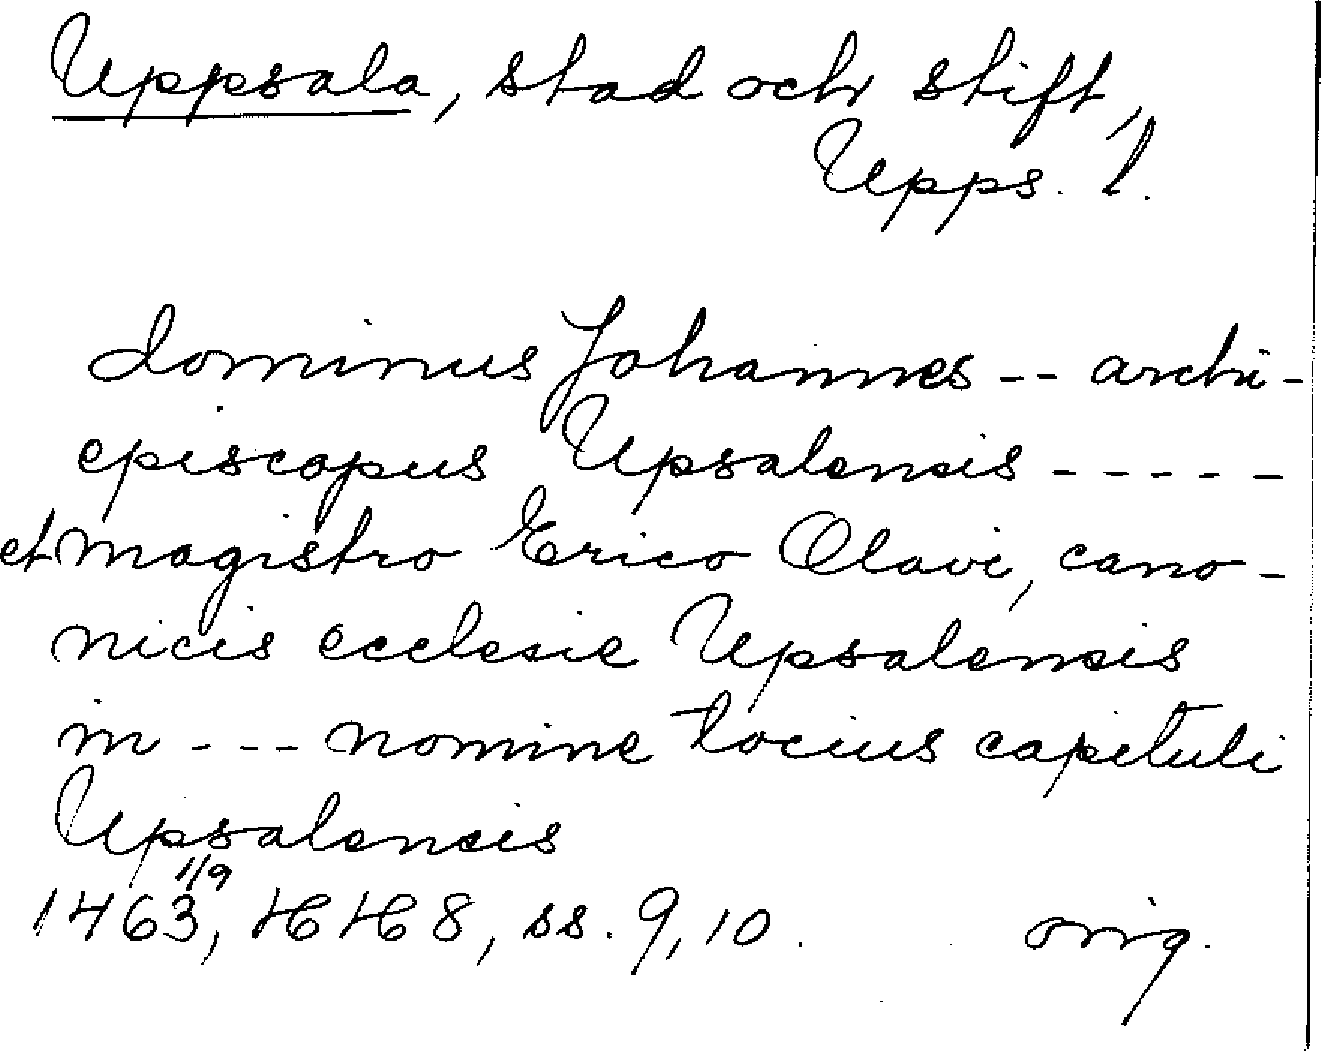 Uppsala, stad och stift,
Upps. l.
dominus Johannes -- archi-
episcopus Upsalensis -----
et magistro Erico Olavi, cano-
nicis ecclesie Upsalensis
in --- nomine tocius capituli
Upsalensis
1463 1/9, HH 8, ss. 9, 10. orig.